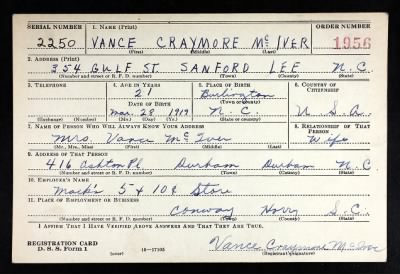 SERIAL NUMBER 1. NAME (Print) ORDER NUMBER
2250 VANCE CRAYMORE McIVER 1956
(First) (Middle) (Last)
2. ADDRESS (Print)
354 GULF ST. SANFORD LEE N.C.
(Number and street or R. F. D. number) (Town) (County) (State)
3. TELEPHONE 4. AGE IN YEARS 5. PLACE OF BIRTH 6. COUNTRY OF CITIZENSHIP
21 Burlington
DATE OF BIRTH (Town or county)
Mar. 28 1919 N.C. U.S.A.
(Exchange) (Number) (Mo.) (Day) (Yr.) (State or country)
7. NAME OF PERSON WHO WILL ALWAYS KNOW YOUR ADDRESS 8. RELATIONSHIP OF THAT PERSON
Mrs. Vance McIver Wife
(Mr., Mrs., Miss) (First) (Middle) (Last)
9. ADDRESS OF THAT PERSON
416 Ashton Pl. Durham Durham N.C.
(Number and street or R. F. D. number) (Town) (County) (State)
10. EMPLOYER'S NAME
Mack's 5 + 10¢ Store
11. PLACE OF EMPLOYMENT OR BUSINESS
Conway Horry S.C.
(Number and street or R. F. D. number) (Town) (County) (State)
I AFFIRM THAT I HAVE VERIFIED ABOVE ANSWERS AND THAT THEY ARE TRUE.
REGISTRATION CARD
D. S. S. Form 1 (over) 16—17105 Vance Craymore McIver
(Registrant's signature)